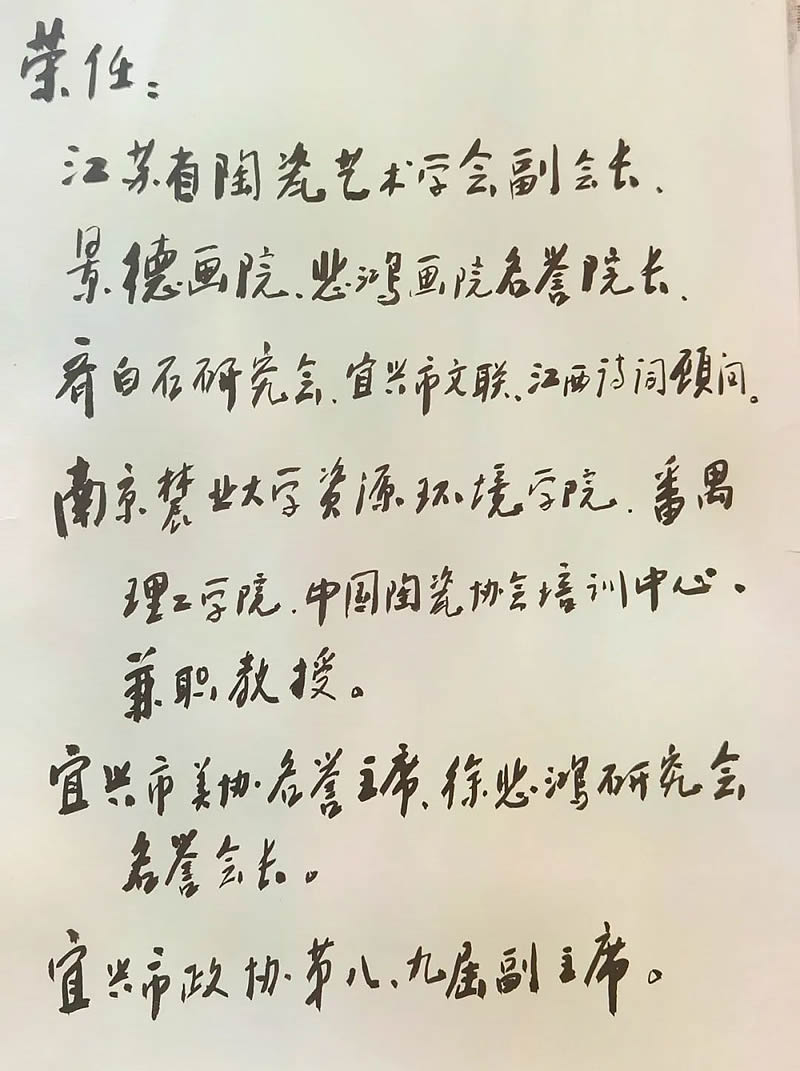 荣任：
江苏省陶瓷艺术学会副会长、
景德画院、悲鸿画院名誉院长、
齐白石研究会、宜兴市文联、江西诗词顾问。
南京農业大学資源环境学院、番禺
理工学院、中国陶瓷协会培训中心。
兼职教授。
宜兴市美协名誉主席、徐悲鸿研究会
名誉会长。
宜兴市政协第八、九届副主席。